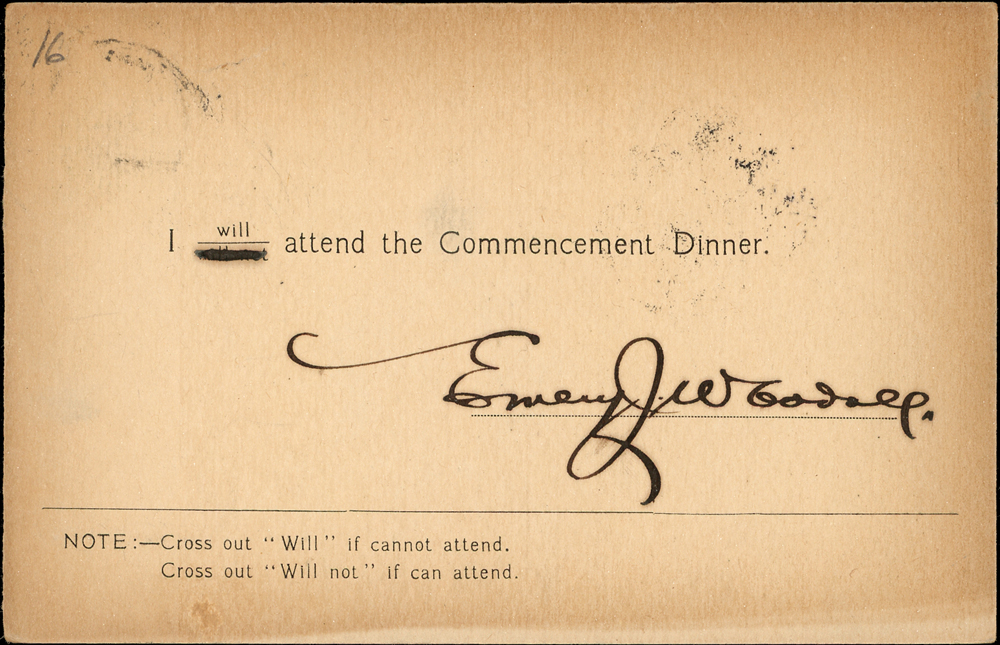 16
will
I attend the Commencement Dinner.
Emery J. Woodall.
NOTE:—Cross out "Will" if cannot attend.
Cross out "Will not" if can attend.